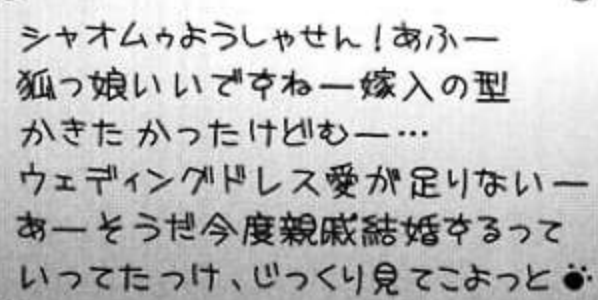 シャオムゥようしゃせん！あふー
狐っ娘いいですねー嫁入の型
かきたかったけどむー…
ウェディングドレス愛が足りないー
あーそうだ今度親戚結婚するって
いってたっけ、じっくり見てこよっと